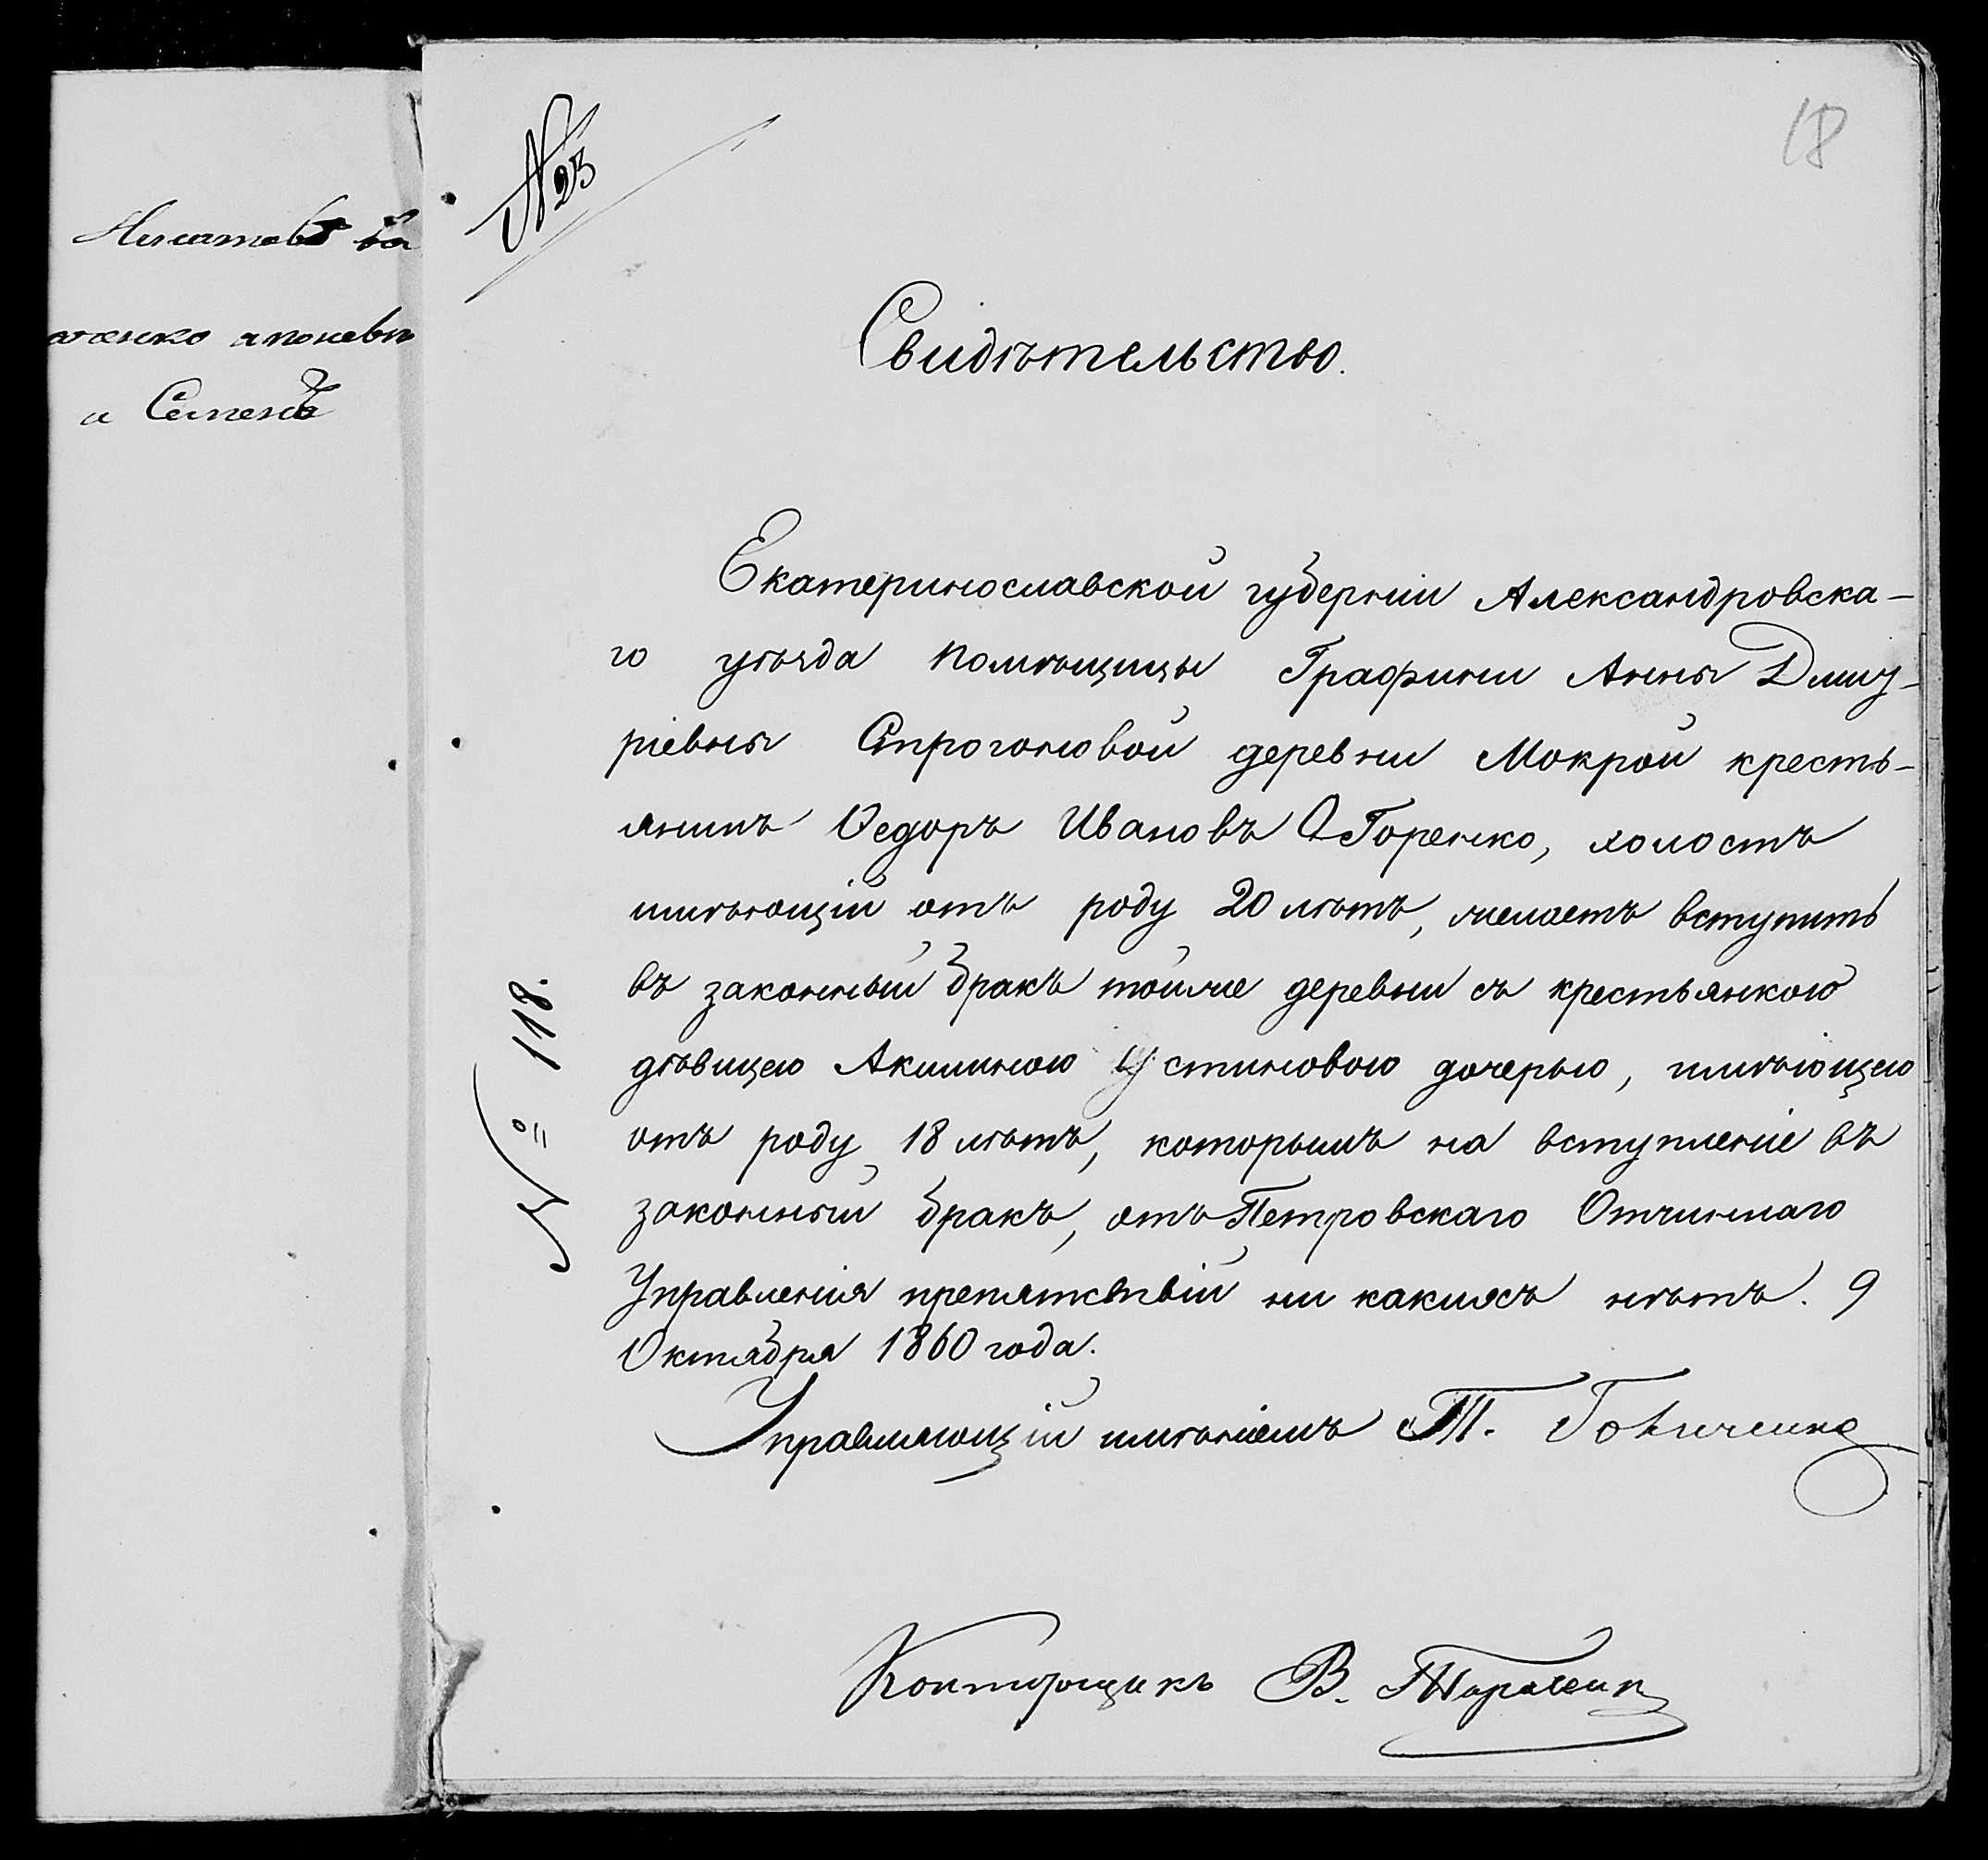 а Семена
№ 23
18
Свидѣтельство.
Екатеринославской губерніи Александровска-
го уѣзда помѣщицы Графини Анны Дмит-
ріевны Строгоновой деревни Мокрой кресть-
янинъ Федоръ Ивановъ Горенко, холостъ
имѣющій отъ роду 20 лѣтъ, желаетъ вступить
въ законный бракъ тойже деревни съ крестьянкою
дѣвицею Акилиною Устиновою дочерью, имѣющею
отъ роду 18 лѣтъ, которымъ на вступленіе въ
законный бракъ, отъ Петровскаго Отчиннаго
Управленія препятствій ни какихъ нѣтъ. 9
Октября 1860 года.
№ 118.
Управляющій имѣніемъ Т.
Конторщикъ В.